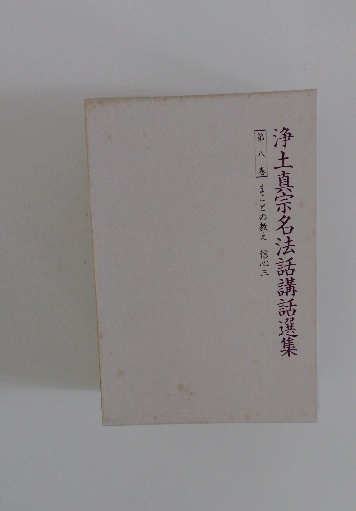 浄土真宗名法話講話選集
第八巻 まことの教え 信心三